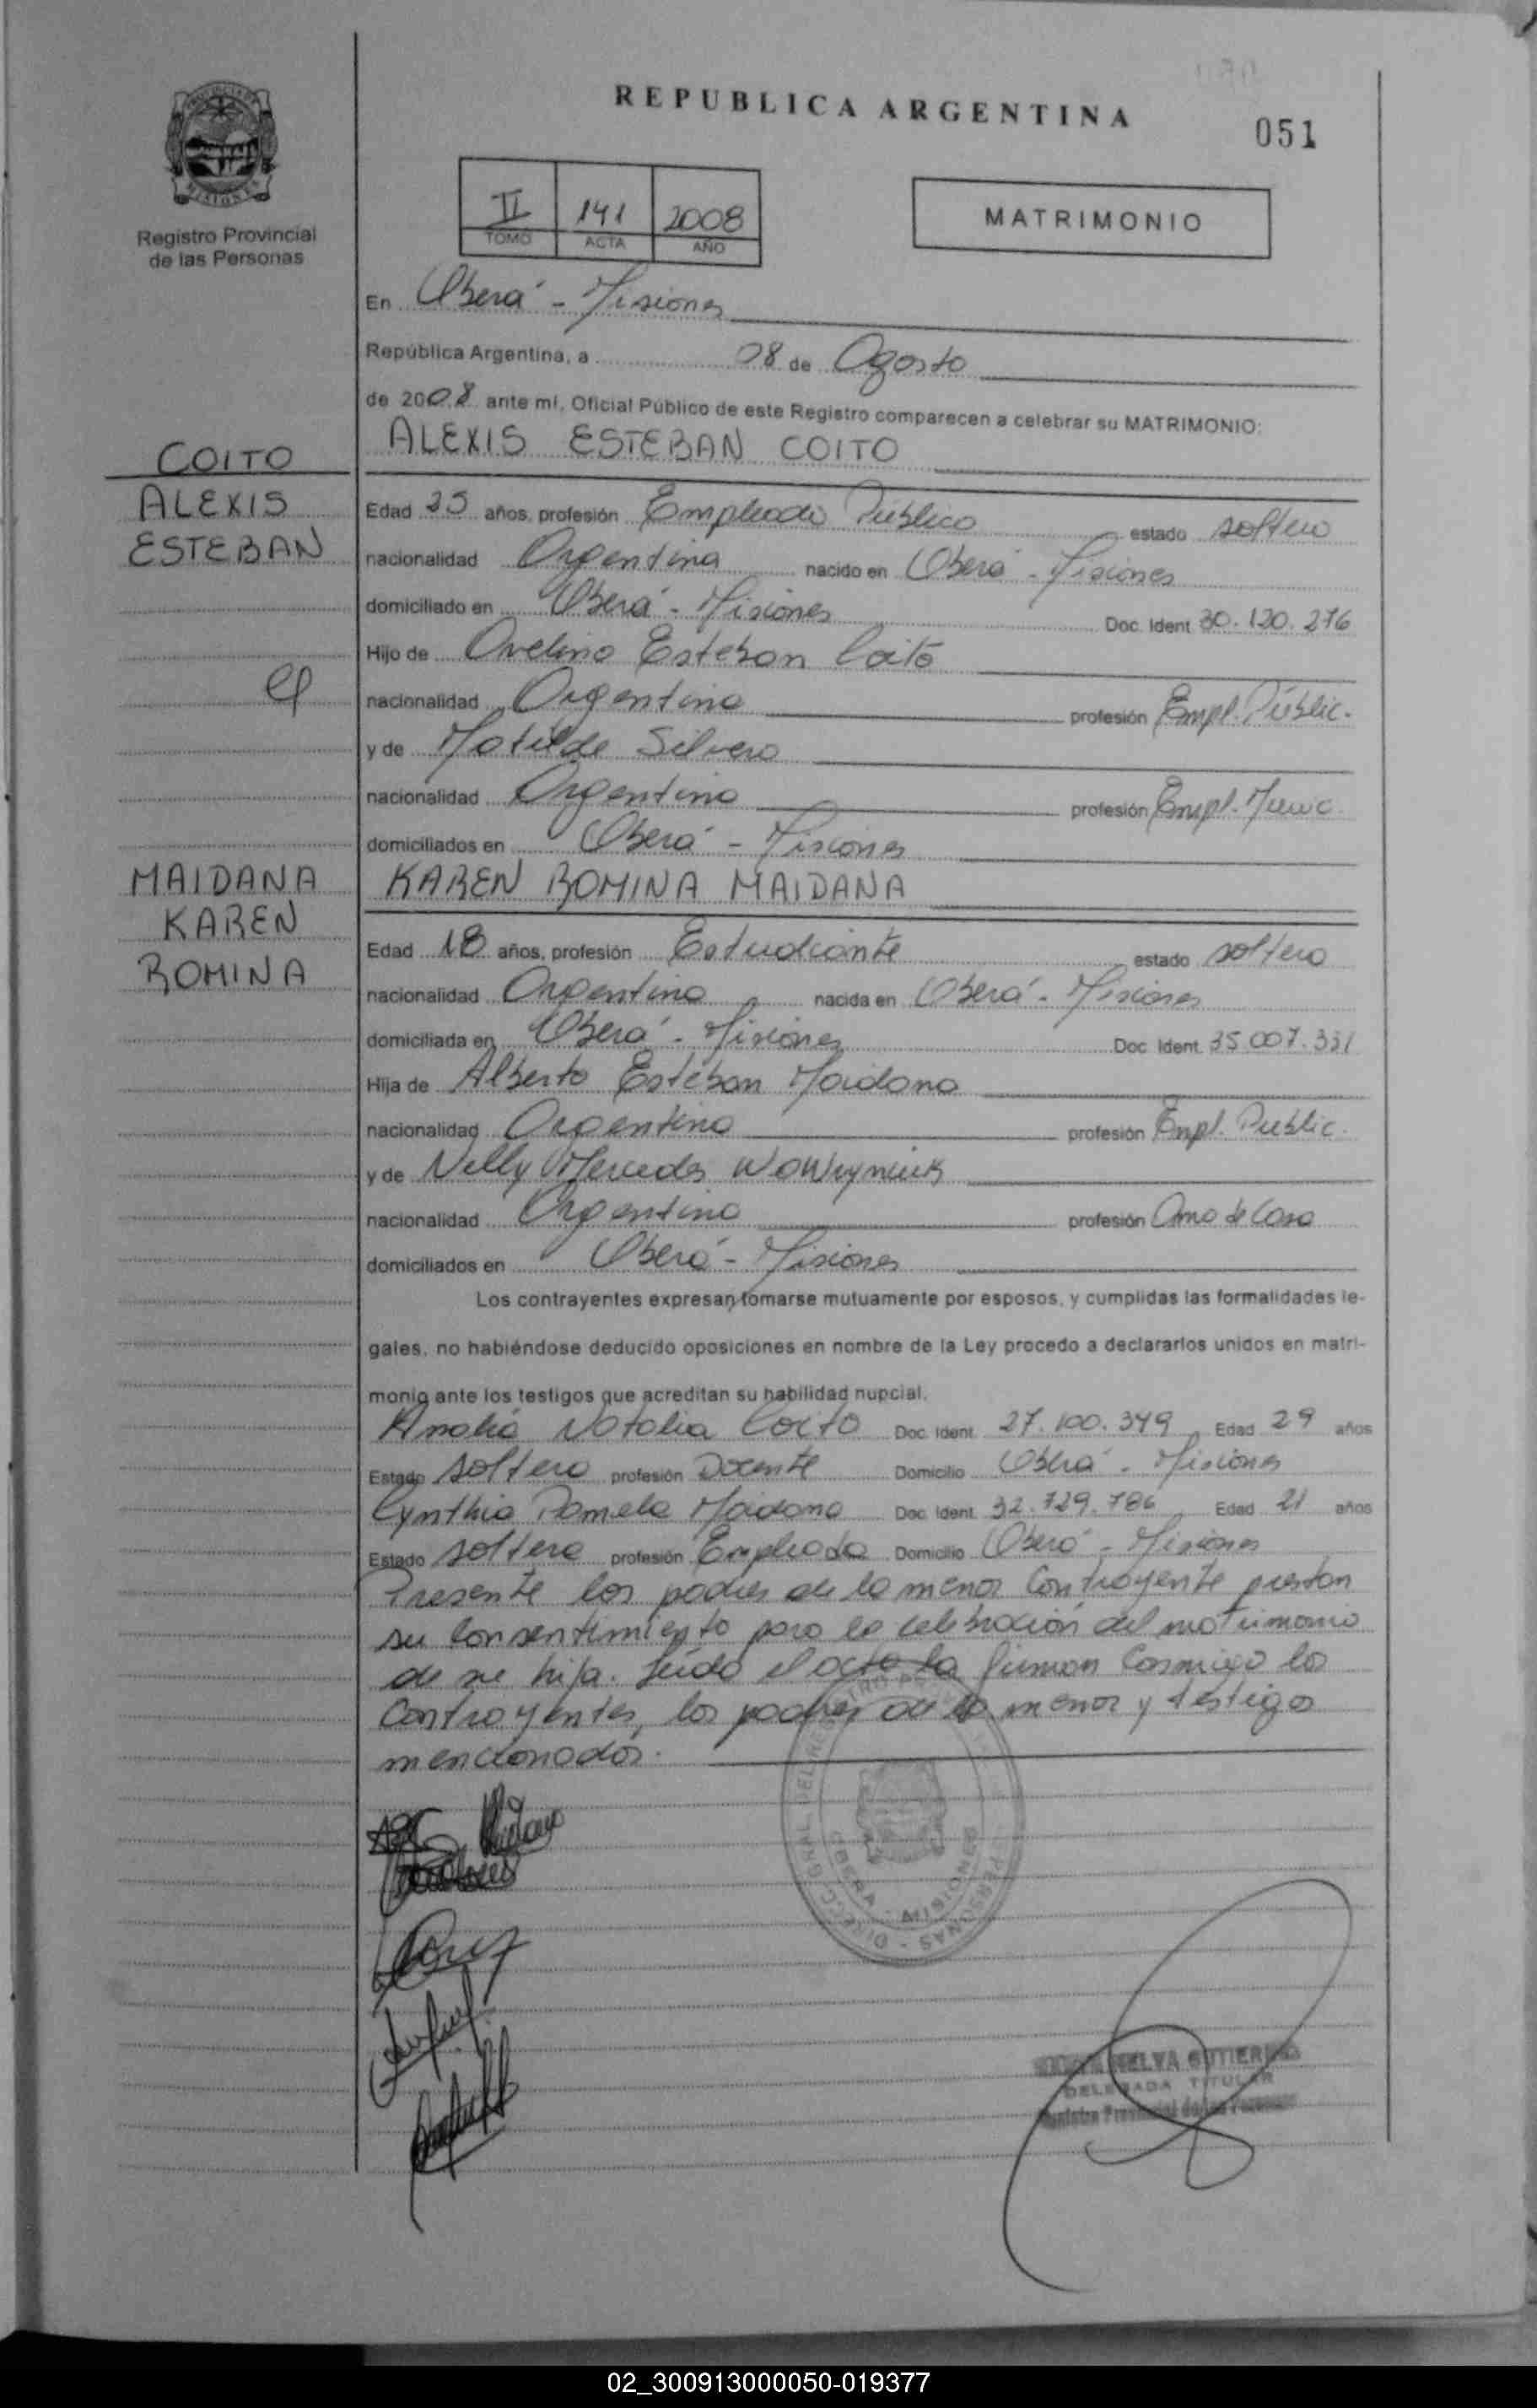 REPUBLICA ARGENTINA
051
Registro Provincial
de las Personas
II 141 2008
TOMO ACTA AÑO
MATRIMONIO
En Oberá - Misiones
República Argentina, a 08 de Agosto
de 2008 ante mí, Oficial Público de este Registro comparecen a celebrar su MATRIMONIO:
COITO
ALEXIS
ESTEBAN
y
ALEXIS ESTEBAN COITO
Edad 25 años, profesión Empleado Público estado soltero
nacionalidad Argentina nacido en Oberá - Misiones
domiciliado en Oberá - Misiones Doc. Ident. 30.120.276
Hijo de Avelino Esteban Coito
nacionalidad Argentina profesión Empl. Públic.
y de Matilde Silvero
nacionalidad Argentina profesión Empl.
domiciliados en Oberá - Misiones
MAIDANA
KAREN
ROMINA
KAREN ROMINA MAIDANA
Edad 18 años, profesión Estudiante estado soltera
nacionalidad Argentina nacida en Oberá - Misiones
domiciliada en Oberá - Misiones Doc. Ident. 35.007.331
Hija de Alberto Esteban Maidana
nacionalidad Argentina profesión Empl. Públic.
y de Nelly Mercedes Wowryniuk
nacionalidad Argentina profesión Ama de Casa
domiciliados en Oberá - Misiones
Los contrayentes expresan tomarse mutuamente por esposos, y cumplidas las formalidades le-
gales, no habiéndose deducido oposiciones en nombre de la Ley procedo a declararlos unidos en matri-
monio ante los testigos que acreditan su habilidad nupcial.
Amalia Natalia Coito Doc. Ident. 27.100.349 Edad 29 años
Estado soltera profesión Docente Domicilio Oberá - Misiones
Cynthia Pamela Maidana Doc. Ident. 32.729.786 Edad 21 años
Estado soltera profesión Empleada Domicilio Oberá - Misiones
Presente los padres de la menor Contrayente prestan
su consentimiento para la celebración del matrimonio
de su hija. Leída el acta la firman Conmigo los
Contrayentes, los padres de la menor y testigos
mencionados.
DIRECC. GRAL. DEL REGISTRO PERSONAS
OBERA - MISIONES
NELVA GUTIERREZ
DELEGADA TITULAR
Registro Provincial de las Personas
02_300913000050-019377